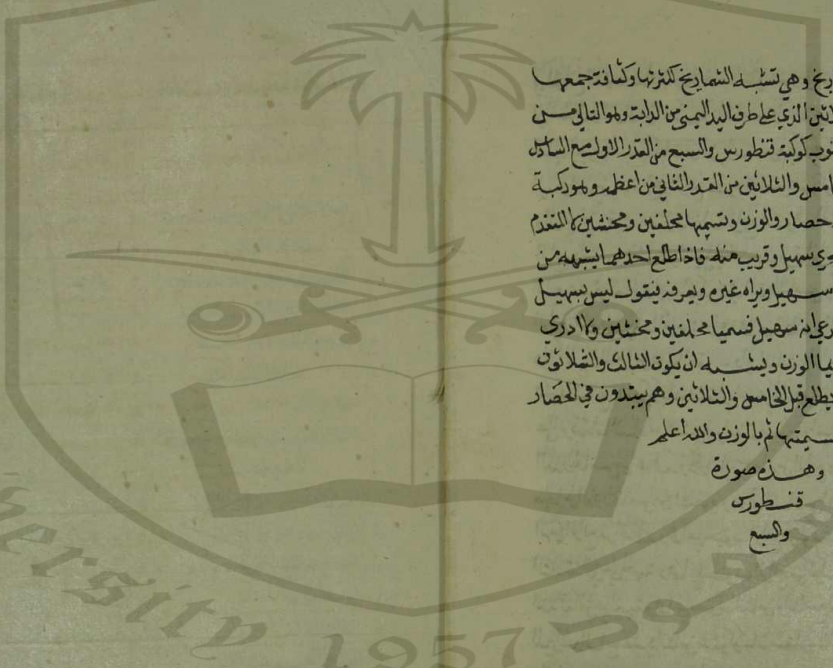 ريخ وهي تشبه الشماريخ لكثرتها وكثافة جمعها
لاثين الذي على طرف اليد اليمنى من الدابة وهو التالي من
نوب كوكبة قنطورس والسبع من القدر الاول مع السادس
امس والثلاثين من القدر الثاني من اعظمه وهو ركبة
حصار والوزن وتسميها محلفين ومحنثين
رى سهيل وقريب منه فاذا طلع احدهما يشبهه من
سهيل ويراه غيره ويعرفه فيقول ليس بسهيل
انه سهيل فسميا محلفين ومحنثين ولا ادري
يا الوزن ويشبه ان يكون الثالث والثلاثون
يطلع قبل الخامس والثلاثين وهم يبتدون في الحضار
سميتها ثم بالوزن والله اعلم
وهذه صورة
قنطورس
والسبع
ersity 1957